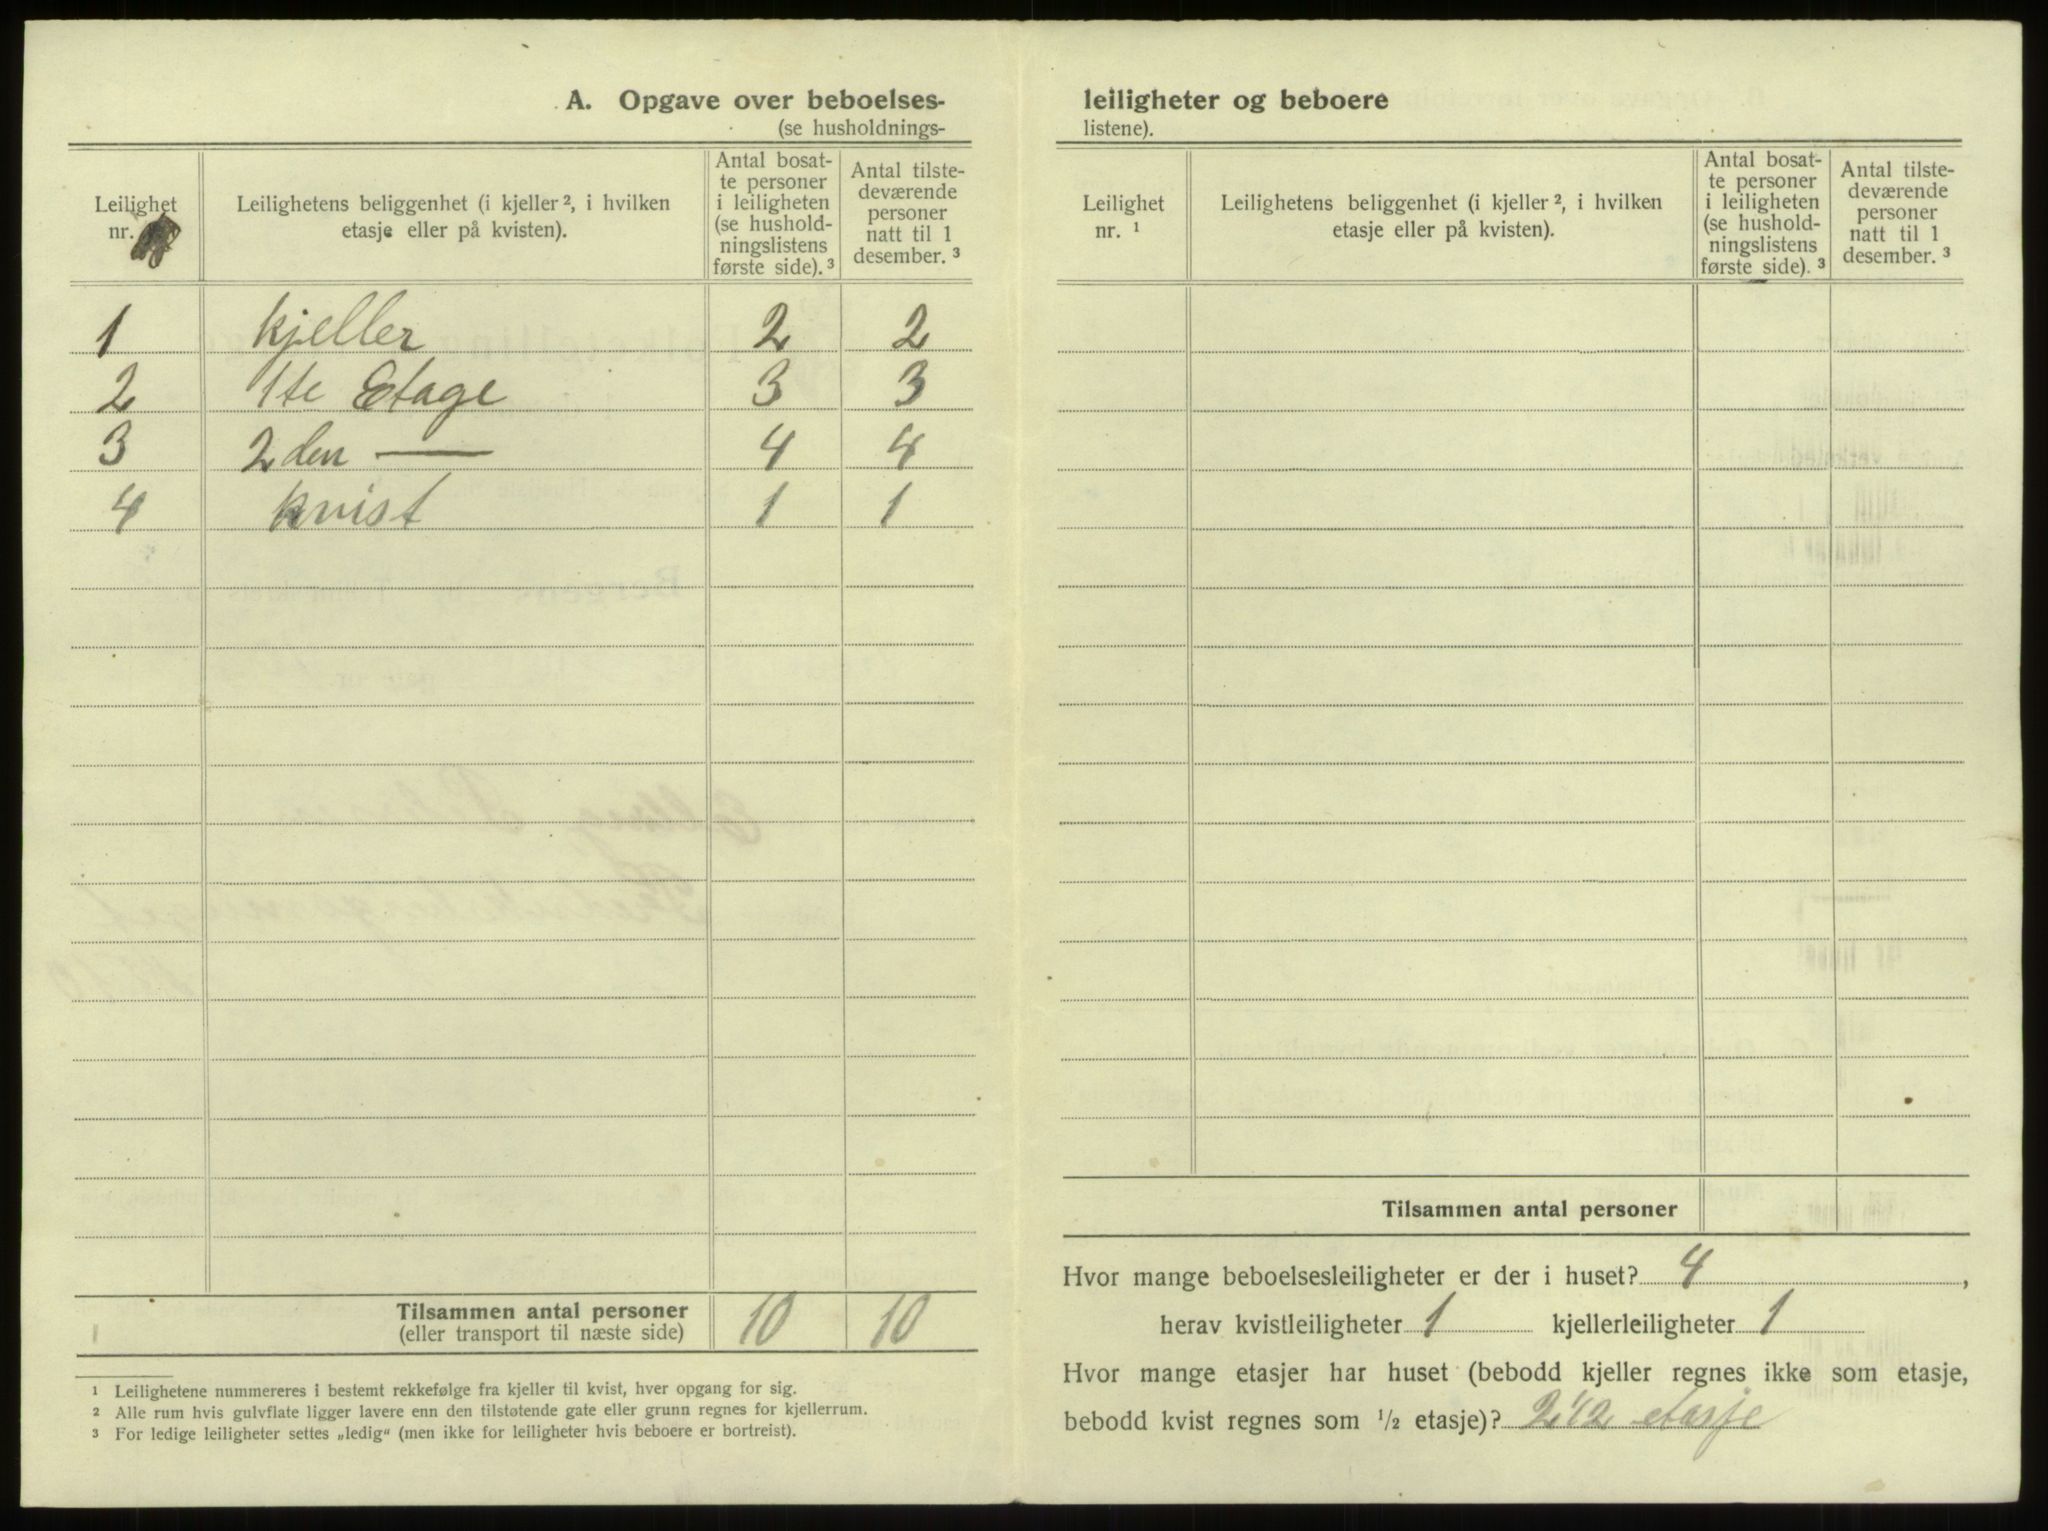 A. Opgave over beboelses-
(se husholdnings-
Leilighet
nr.
Leilighetens beliggenhet (i kjeller ², i hvilken
etasje eller på kvisten).
Antal bosat-
te personer
i leiligheten
(se hushold-
ningslistens
første side). ³
Antal tilste-
deværende
personer
natt til 1
desember. ³
1 kjeller 2 2
2 1te Etage 3 3
3 2den — 4 4
4 kvist 1 1
Tilsammen antal personer
(eller transport til næste side)
10 10
¹ Leilighetene nummereres i bestemt rekkefølge fra kjeller til kvist, hver opgang for sig.
² Alle rum hvis gulvflate ligger lavere enn den tilstøtende gate eller grunn regnes for kjellerrum.
³ For ledige leiligheter settes „ledig" (men ikke for leiligheter hvis beboere er bortreist).
leiligheter og beboere
listene).
Leilighet
nr. ¹
Leilighetens beliggenhet (i kjeller ², i hvilken
etasje eller på kvisten).
Antal bosat-
te personer
i leiligheten
(se hushold-
ningslistens
første side). ³
Antal tilste-
deværende
personer
natt til 1
desember. ³
Tilsammen antal personer
Hvor mange beboelsesleiligheter er der i huset? 4,
herav kvistleiligheter 1 kjellerleiligheter 1
Hvor mange etasjer har huset (bebodd kjeller regnes ikke som etasje,
bebodd kvist regnes som ½ etasje)? 2 1/2 etasje